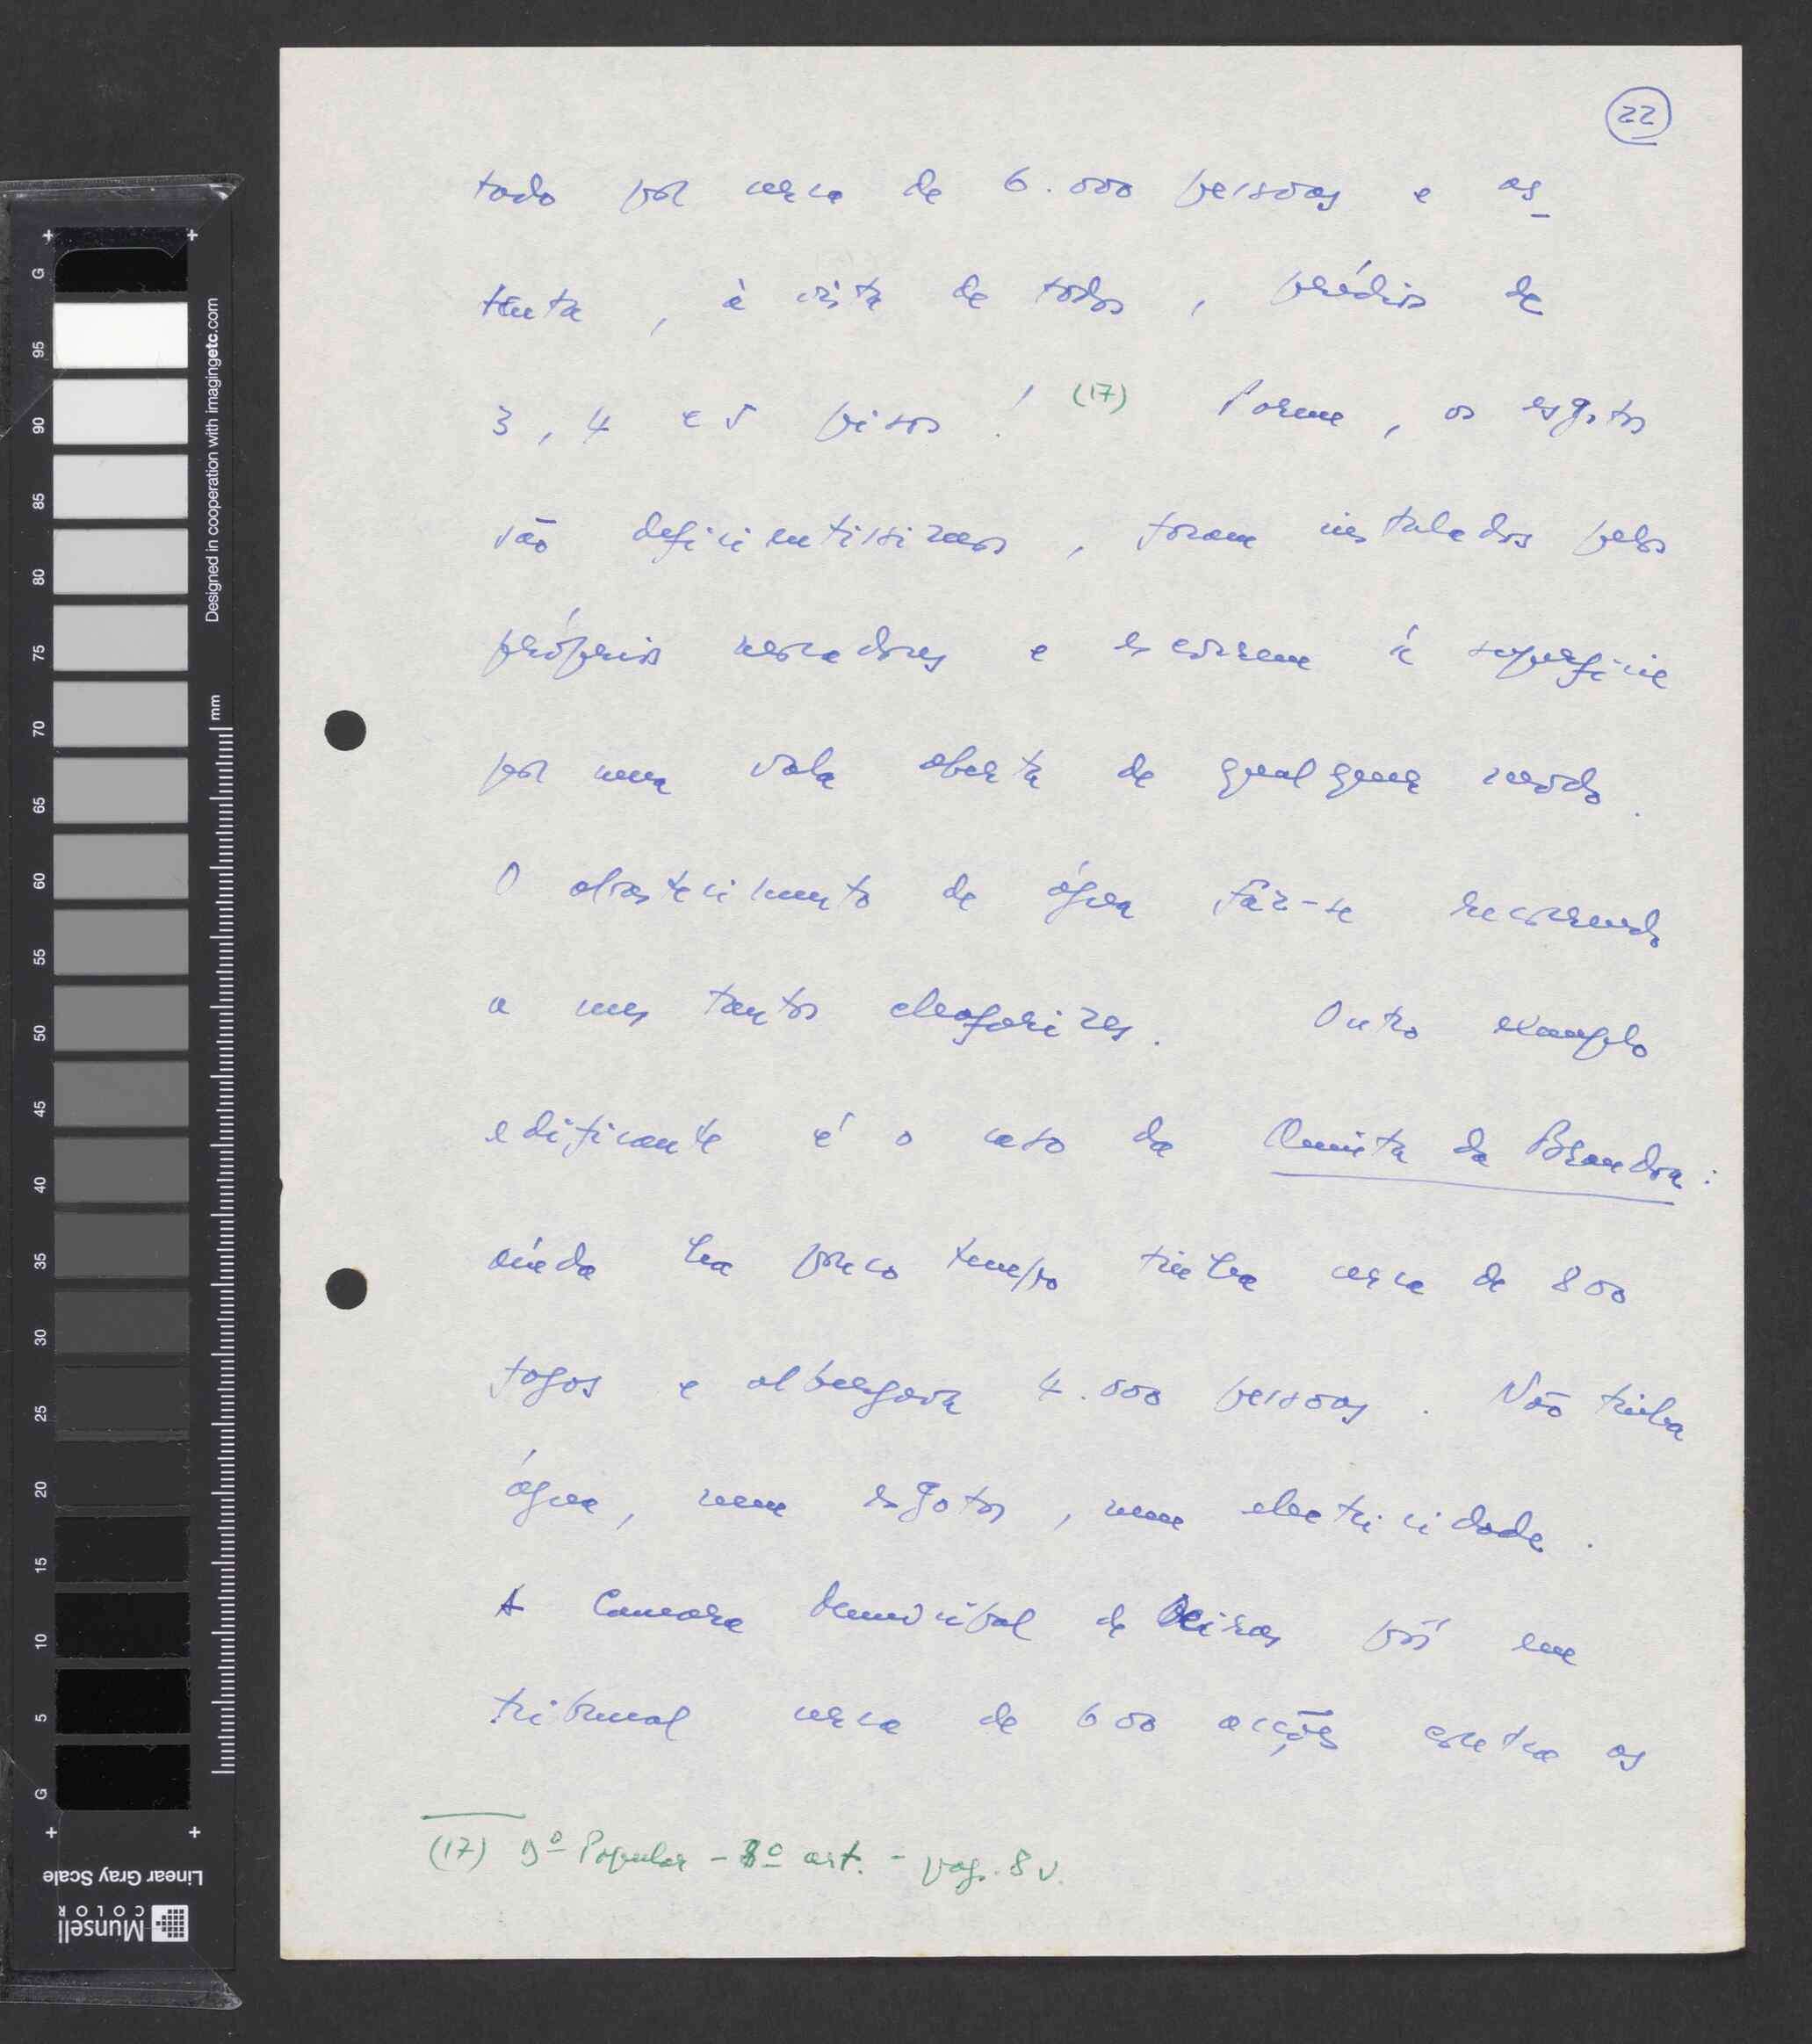 22
tado por cerca de 6.000 pessoas e os-
tenta, à vista de todos, prédios de
3, 4 e 5 pisos! (17) Porem, os esgotos
são deficientissimos, foram instalados pelos
próprios moradores e escorrem à superficie
por uma vala aberta de qualquer modo.
O abastecimento de água faz-se recorrendo
a uns tantos chafarizes. Outro exemplo
edificante é o caso da Quinta da Brandoa:
ainda ha pouco tempo tinha cerca de 800
fogos e albergava 4.000 pessoas. Não tinha
água, nem esgotos, nem electricidade.
A Camara Municipal de Oeiras pôs em
tribunal cerca de 600 acções contra os
(17) Dº Popular - 8º art. - pag. 8 v.
G 95 90 85 80 75 70 65 60 55 50 45 40 35 30 25 20 15 10 5 G
Designed in cooperation with imagingetc.com
mm
Linear Gray Scale
Munsell
COLOR